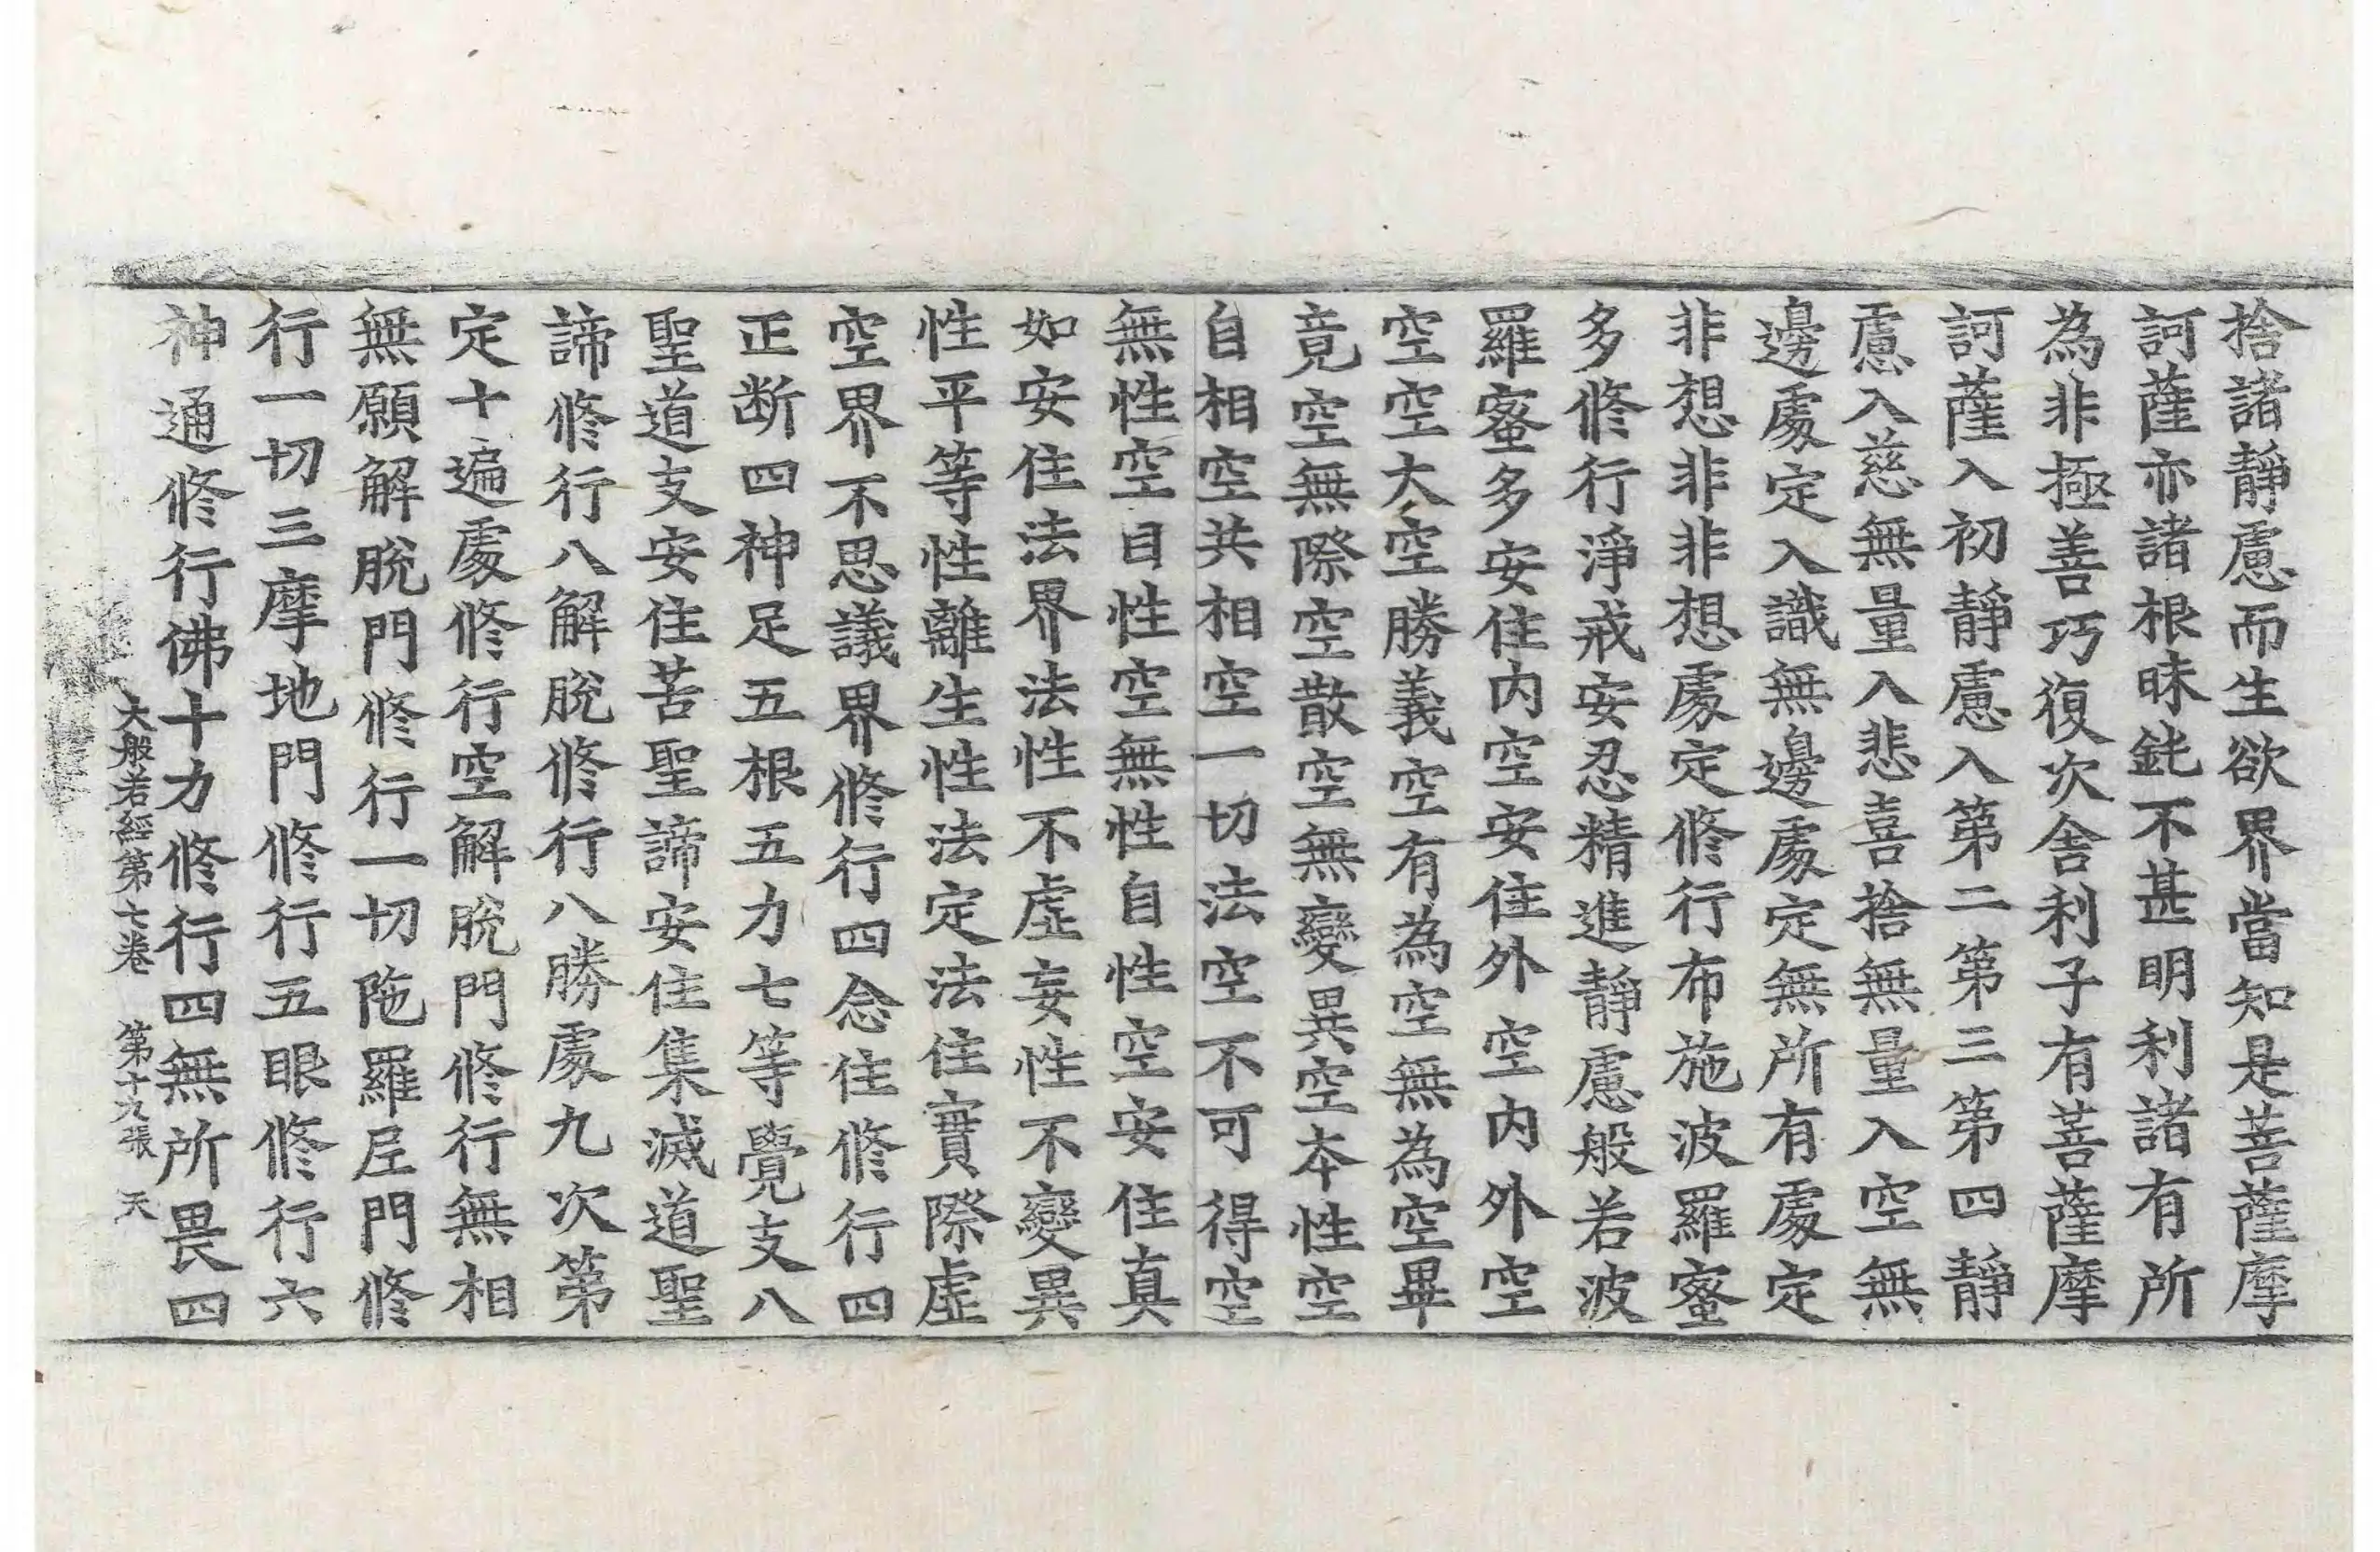 捨諸靜慮而生欲界當知是菩薩摩
訶薩亦諸根昧鈍不甚明利諸有所
為非極善巧復次舍利子有菩薩摩
訶薩入初靜慮入第二第三第四靜
慮入慈無量入悲喜捨無量入空無
邊處定入識無邊處定無所有處定
非想非非想處定修行布施波羅蜜
多修行淨戒安忍精進靜慮般若波
羅蜜多安住內空安住外空內外空
空空大空勝義空有為空無為空畢
竟空無際空散空無變異空本性空
自相空共相空一切法空不可得空
無性空自性空無性自性空安住真
如安住法界法性不虛妄性不變異
性平等性離生性法定法住實際虛
空界不思議界修行四念住修行四
正断四神足五根五力七等覺支八
聖道支安住苦聖諦安住集滅道聖
諦修行八解脫修行八勝處九次第
定十遍處修行空解脫門修行無相
無願解脫門修行一切陁羅尼門修
行一切三摩地門修行五眼修行六
神通修行佛十力修行四無所畏四
大般若經第七卷 第十九張 天